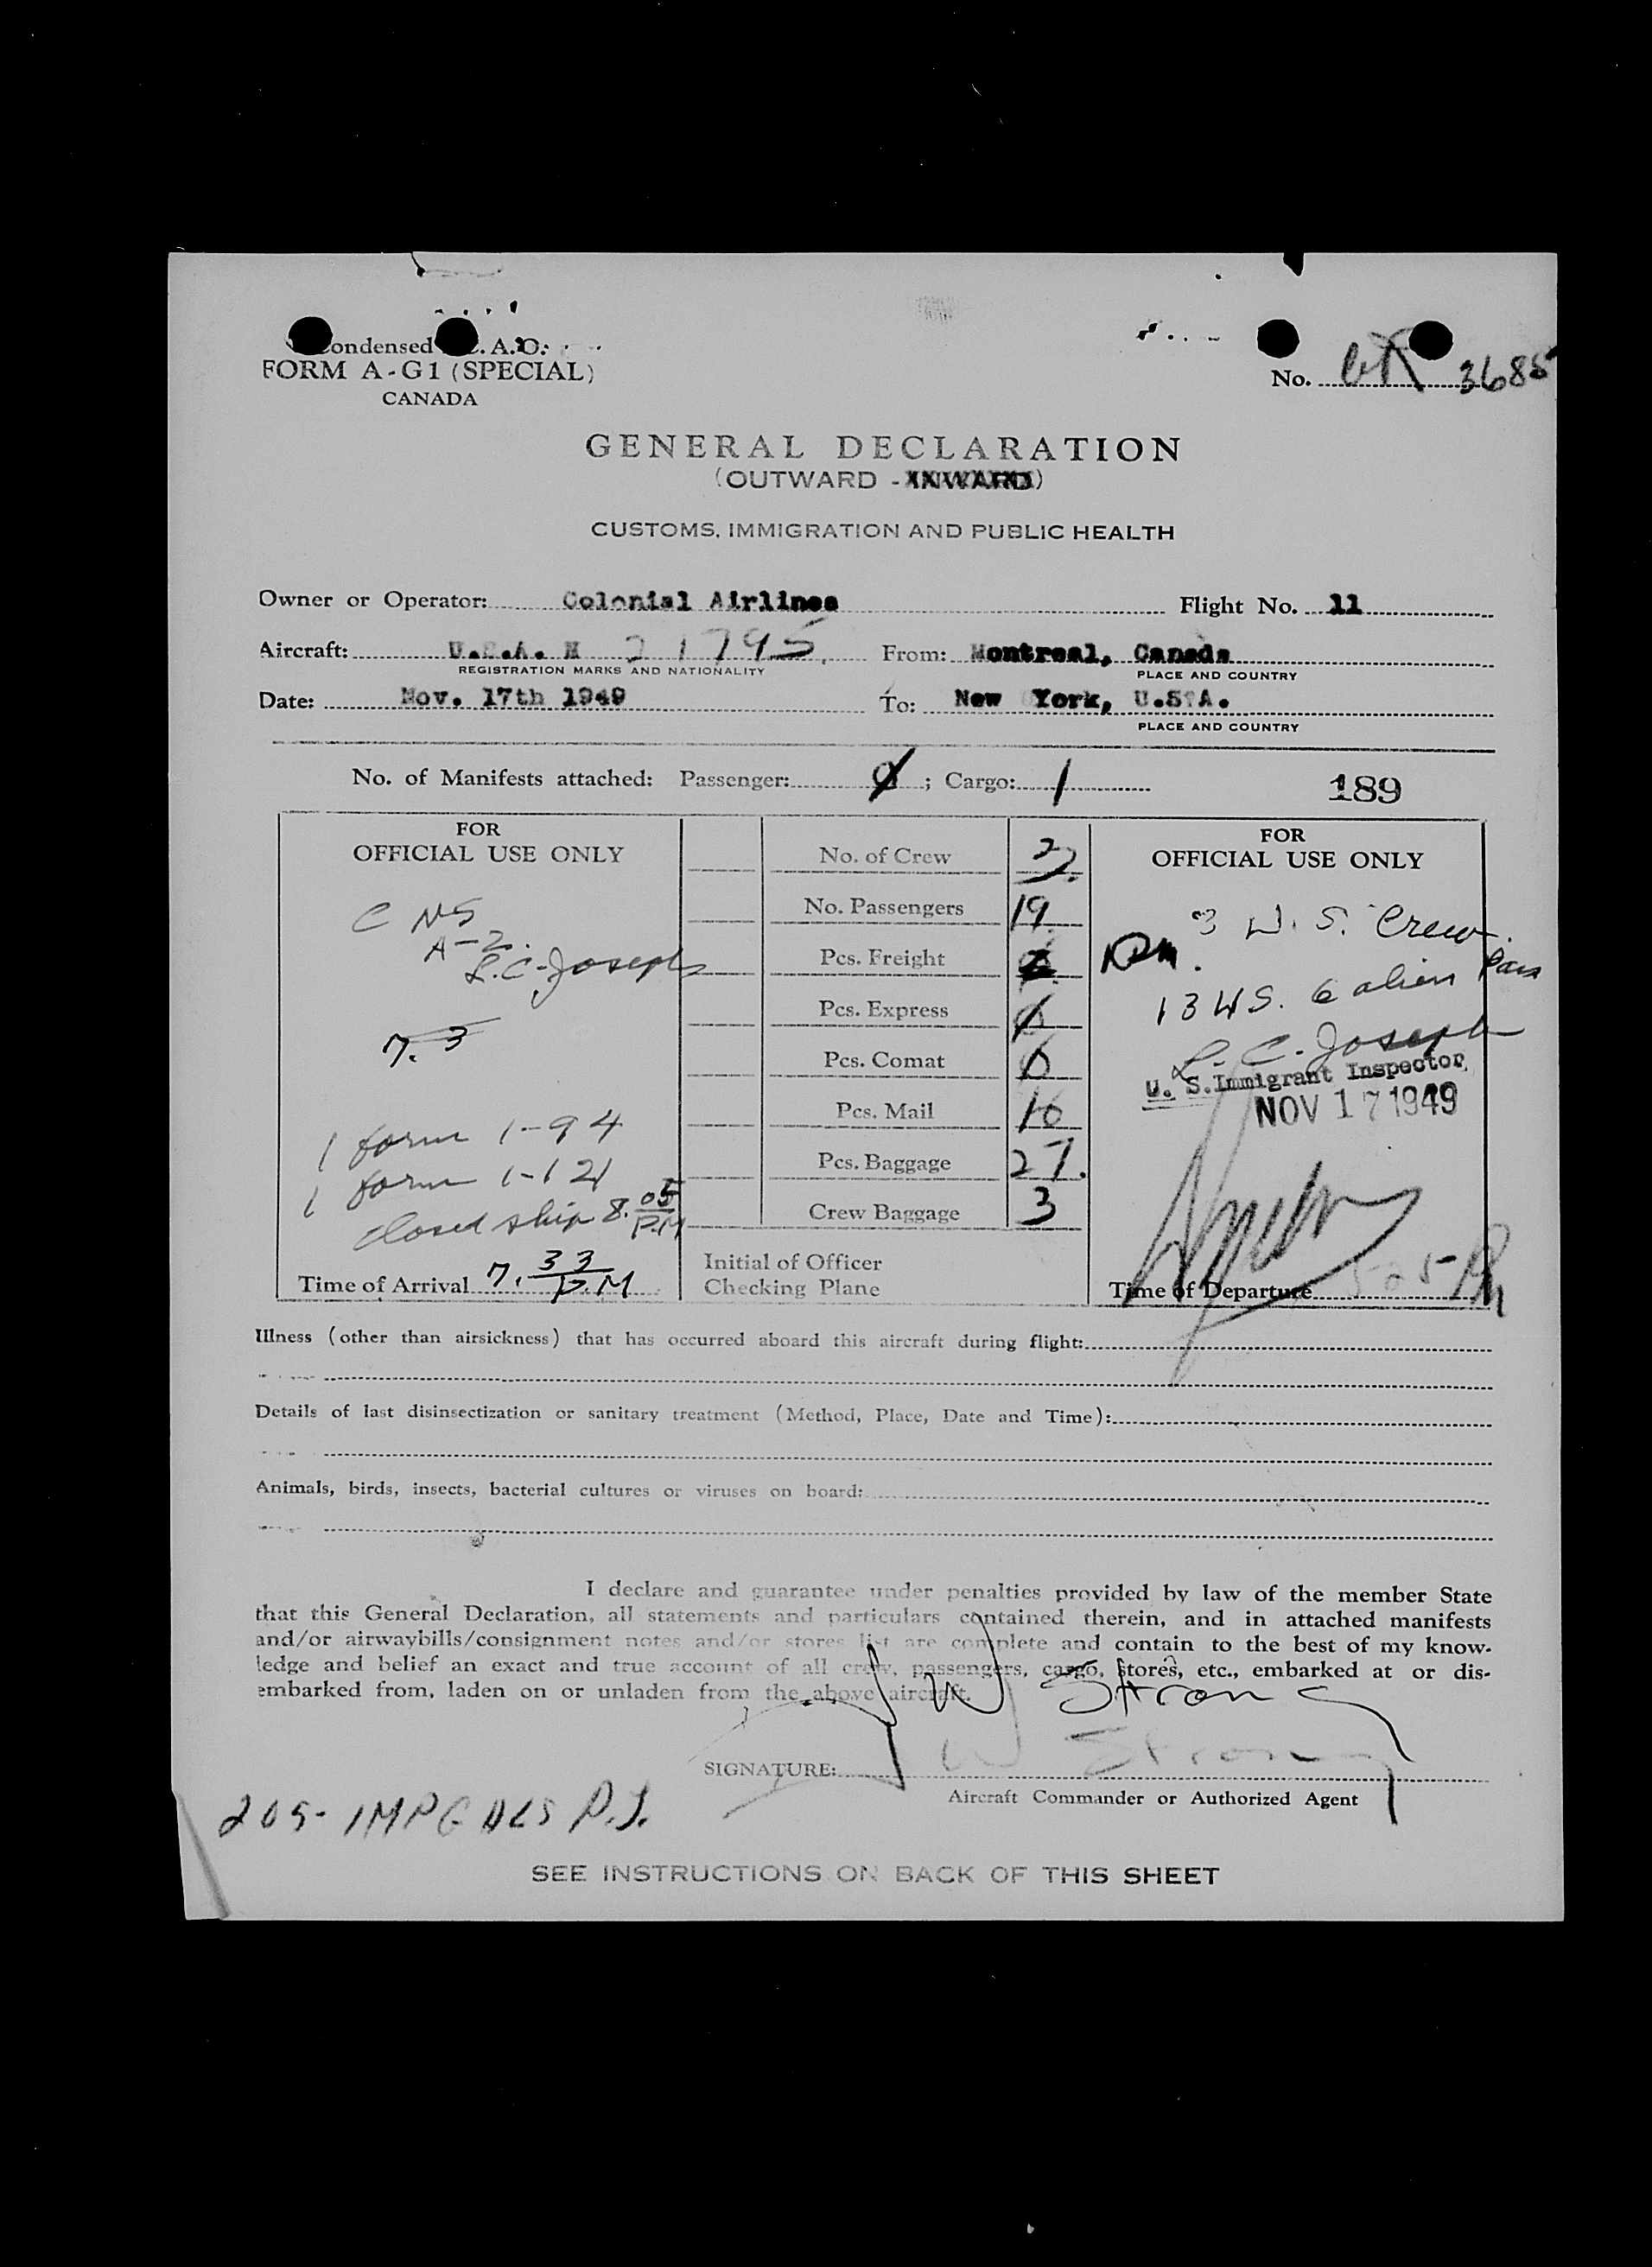 Condensed I.C.A.O.
FORM A-G1 (SPECIAL)
CANADA
No. 3685
GENERAL DECLARATION
(OUTWARD - INWARD)
CUSTOMS, IMMIGRATION AND PUBLIC HEALTH
Owner or Operator: Colonial Airlines Flight No. 11
Aircraft: U.S.A. N 21795 From: Montreal, Canada
REGISTRATION MARKS AND NATIONALITY PLACE AND COUNTRY
Date: Nov. 17th 1949 To: New York, U.S.A.
PLACE AND COUNTRY
No. of Manifests attached: Passenger: ; Cargo: 1 189
FOR
OFFICIAL USE ONLY
C NS
A-2.
L.C. Joseph
7.3
1 form 1-94
1 form 1-121
closed ship 8.05 P.M
Time of Arrival 7.33 P.M
No. of Crew
No. Passengers 19
Pcs. Freight
Pcs. Express
Pcs. Comat
Pcs. Mail 16
Pcs. Baggage 27.
Crew Baggage 3
Initial of Officer
Checking Plane
FOR
OFFICIAL USE ONLY
3 U.S. Crew.
13 US. 6 alien Pass
L. C. Joseph
U. S. Immigrant Inspector
NOV 17 1949
Time of Departure 505
Illness (other than airsickness) that has occurred aboard this aircraft during flight:
Details of last disinsectization or sanitary treatment (Method, Place, Date and Time):
Animals, birds, insects, bacterial cultures or viruses on board:
I declare and guarantee under penalties provided by law of the member State
that this General Declaration, all statements and particulars contained therein, and in attached manifests
and/or airwaybills/consignment notes and/or stores list are complete and contain to the best of my know-
ledge and belief an exact and true account of all crew, passengers, cargo, stores, etc., embarked at or dis-
embarked from, laden on or unladen from the above aircraft.
J W Strong
SIGNATURE: W Strong
Aircraft Commander or Authorized Agent
205- P.J.
SEE INSTRUCTIONS ON BACK OF THIS SHEET